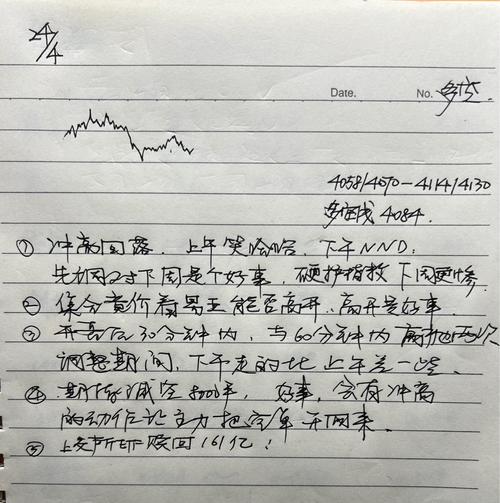 24/4
Date. No. 多空
4058/4070-4114/4130
多空线 4084.
① 冲高回落. 上午笑哈哈. 下午NND.
先抑对下周是个好事. 硬护指数下周更惨.
② 集合竞价看 能否高开. 高开是好事.
③ 开盘后30分钟内, 与60分钟内 两次
调整期间, 下午走的比上午差一些.
④ 期指减空 手, 好事, 会有冲高
的动作让主力把空单开回来.
⑤ 上交所ETF赎回161亿!